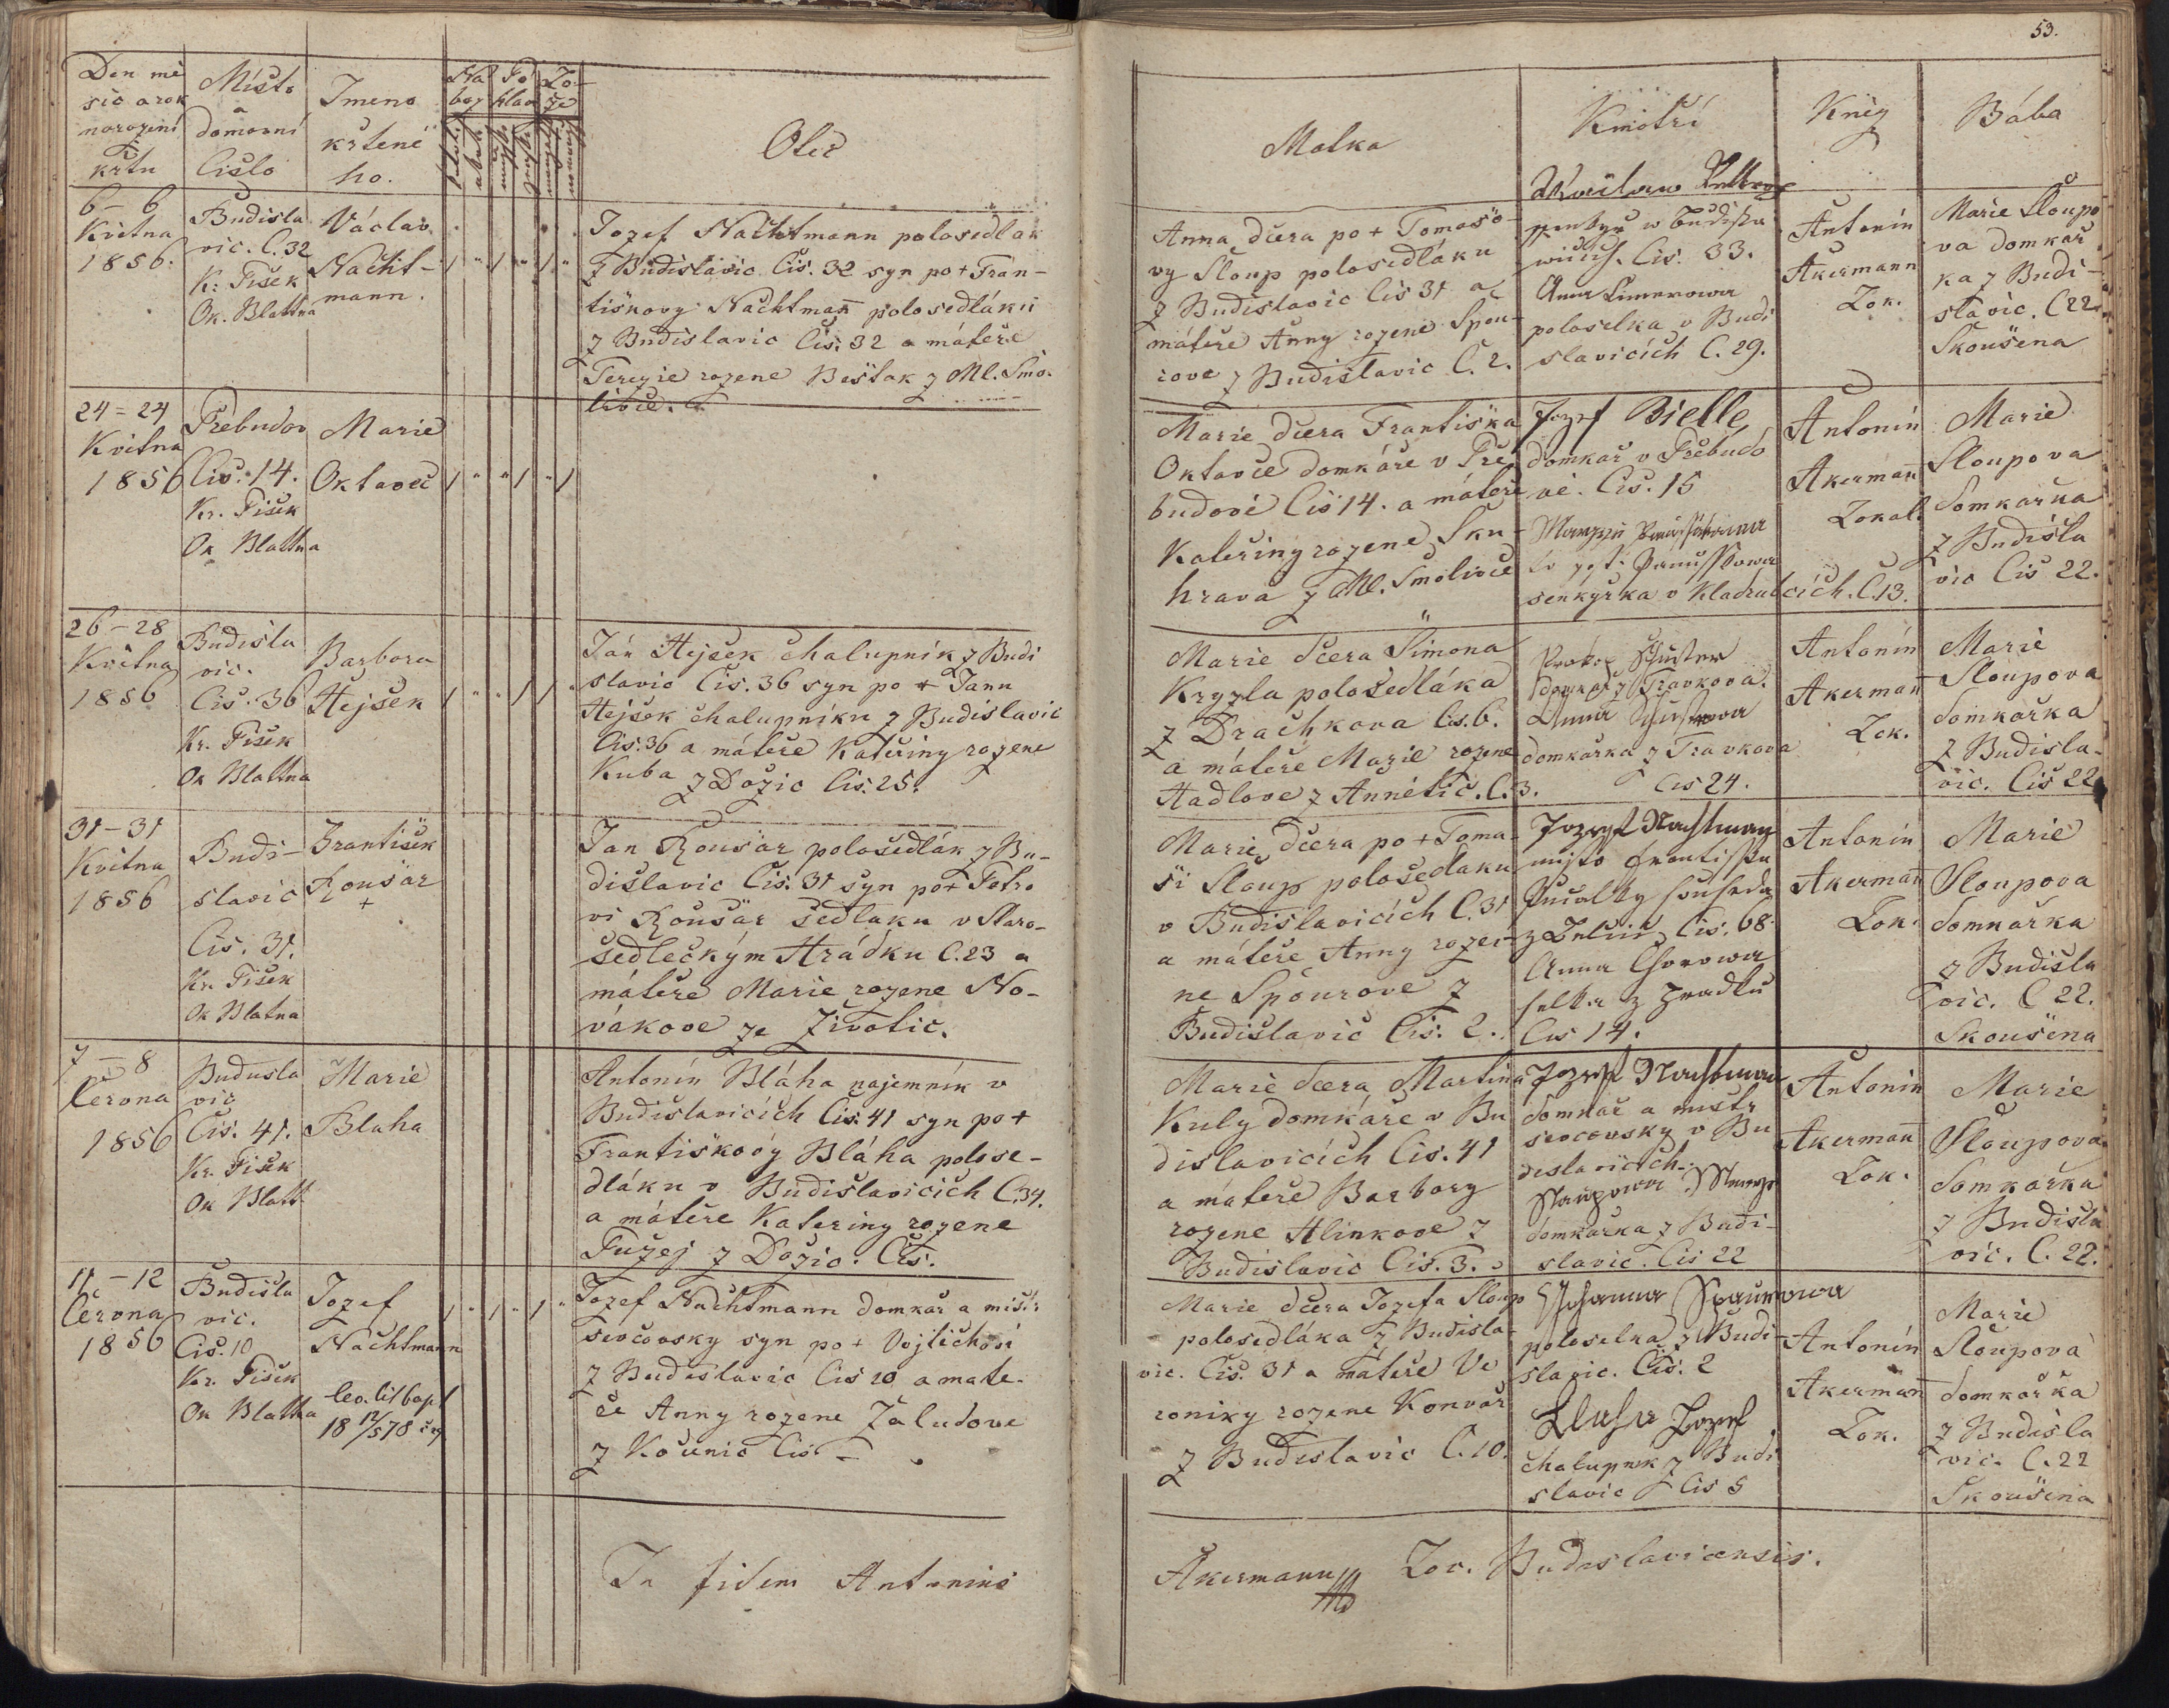 53.
Den mě
sic a rok
narozeni
a
křtu
Místo
a
domovní
Číslo
Jmeno
křtené
ho.
Na
boz
Po
hlav
Lo
že
Otec
Matka
Kmotří
Kněz
Bába
6 – 6
Května
1856.
Budisla
vic. C. 32
Kr. Pisek
Ok. Blattna
Václav
Nacht-
mann.
Jozef Nachtmann polosedlak
z Budislavic Čis. 32 syn po + Fran-
tiskovy Nachtman polosedláku
z Budislavic Čis. 32 a máteře
Terezie rozene Bestak z Ml. Smo-
livce.
Anna dcera po + Tomaso-
vy Sloup polosedláku
z Budislavic Cis 31 a
máteře Anny rozene Spou-
rove z Budislavic C. 2.
Waclaw
w Budissa
wicich. Cis. 33.
Anna
poloselka v Budi
slavicích C. 29.
Antonín
Akermann
Lok.
Marie Sloupo
va domkař
ka z Budi-
slavic. C 22
Skoušena
24 = 24
Května
1856
Přebudov
Cis. 14.
Kr. Pisek
Ok Blattna
Marie
Oktavec
Marie dcera Františka
Oktavce domkáře v Pře
budově Cis 14. a máteře
Kateřiny rozene Sku-
hrava z Ml. Smolivce
Jozef Bielle
domkař v Přebudo
vě. Cis. 15
senkyřka v Kladrubcích. C. 13.
Antonín
Akerman
Lokal.
Marie
Sloupova
Domkařka
z Budisla
vic Cis 22.
26 – 28
Května
1856
Budisla
vic.
Cis. 36
Kr. Pisek
Ok Blattna
Barbora
Hejsek
Ján Hejsek chalupník z Budi
slavic Cis. 36 syn po + Janu
Hejsek chalupníku z Budislavic
Cis. 36 a máteře Kateřiny rozene
Kuba z Dožic Cis. 25.
Marie dcera Simona
Kryzla polosedláka
z Drachkova Cis. 6.
a máteře Marie rozene
Hadlove z Annětic. C. 3.
Prokop Schuster
z Travkova.
Anna Schusterowa
domkařka z Travkova
Cis 24.
Antonín
Akerman
Lok.
Marie
Sloupova
Domkařka
z Budisla-
vic. Cis 22
31 – 31
Května
1856
Budi-
slavic
Cis. 31.
Kr. Pisek
Ok Blatna
Frantisek
Rousar
+
Jan Rousar polosedlák z Bu-
dislavic Cis. 31 syn po + Petro
vi Rousar sedlaku v Staro-
sedleckým Hrádku C. 23 a
máteře Marie rozene No-
vákove ze Životic.
Marie dcera po + Toma-
si Sloup polosedlaku
v Budislavicích C. 31
a máteře Anny roze-
ne Spourove z
Budislavic Cis. 2.
Jozeph Nachtman
misto Frantisska
Cis. 68
Anna
selka z Hradku
Cis 14.
Antonín
Akerman
Lok.
Marie
Sloupova
domkařka
z Budisla
vic. C 22.
Skoušena
7 – 8
Června
1856
Budisla
vic
Cis. 41.
Kr. Pisek
Ok Blatt
Marie
Blaha
Antonín Bláha najemník v
Budislavicích Cis. 41 syn po +
Frantiskovy Bláha polose-
dláku v Budislavicích C. 34.
a máteře Kateriny rozene
Pužej z Dožic. Čis.
Marie dcera Martina
Kuly domkáře v Bu
dislavicích Cis. 41
a máteře Barbory
rozene Hlinkove z
Budislavic Cis. 3.
Jozeph Nachtman
domkař a mistr
sevcovsky v Bu
dislavicích.
domkařka z Budi-
slavic. Cis 22
Antonín
Akerman
Lok.
Marie
Sloupova
Domkařka
z Budisla
vic. C. 22.
11 – 12
Června
1856
Budisla
vic.
Cis. 10
Kr. Pisek
Ok Blattna
Jozef
Nachtmann
Jozef Nachtmann domkař a mistr
sevcovsky syn po + Vojtěchovi
z Budislavic Cis 10 a mate-
ře Anny rozene Žaludove
z Kocunic Cis –
Marie dcera Jozefa Sloup
polosedláka z Budisla-
vic. Cis. 31 a máteře Ve
roniky rozene Konvař
z Budislavic C. 10.
Johanna Spaurowa
poloselka z Budi-
slavic. Čis. 2
Jozef
chalupnik z Budi
slavic Cis 5
Antonín
Akerman
Lok.
Marie
Sloupova
domkařka
z Budisla
vic. C. 22
Skoušena
In fidem Antonius
Akermann Loc. Budislavicensis.